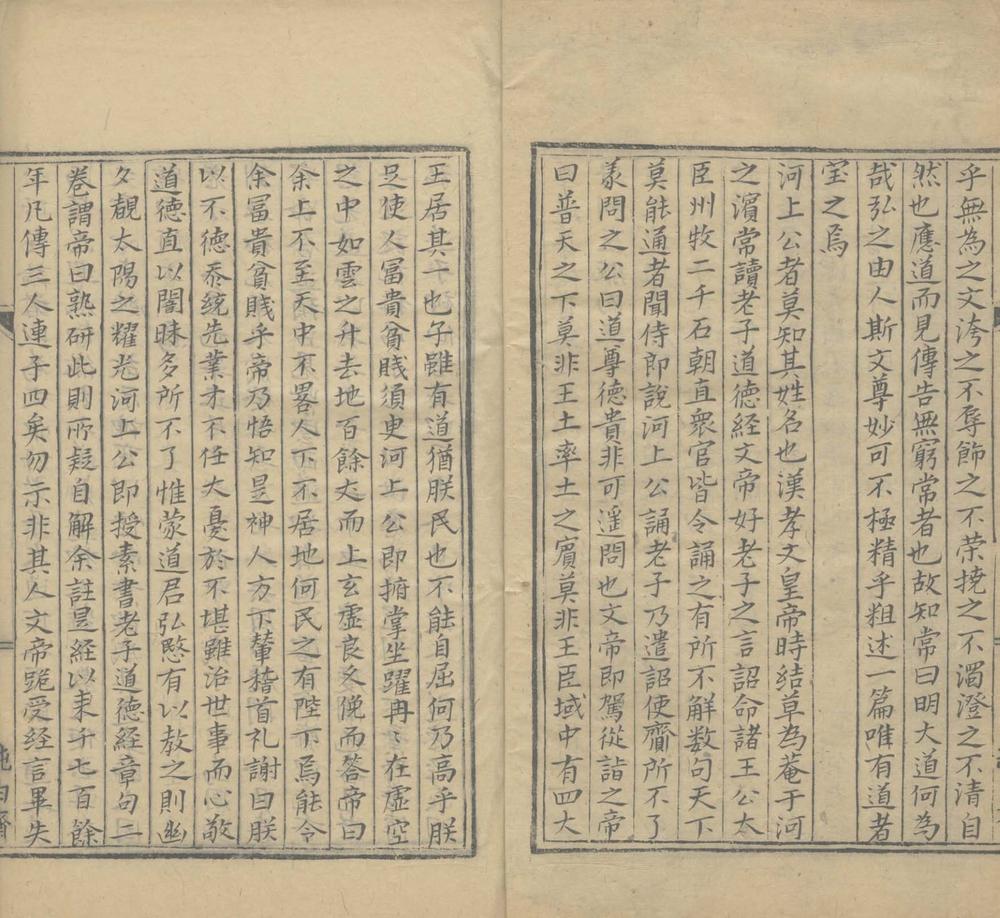 乎無為之文洿之不辱飾之不荣撓之不濁澄之不清自
然也應道而見傳告無窮常者也故知常曰明大道何為
哉弘之由人斯文尊妙可不極精乎粗述一篇唯有道者
宝之焉
河上公者莫知其姓名也漢孝文皇帝時結草為菴于河
之濱常讀老子道德経文帝好老子之言詔命諸王公太
臣州牧二千石朝直衆官皆令誦之有所不解数句天下
莫能通者聞侍郎說河上公誦老子乃遣詔使齎所不了
義問之公曰道尊德貴非可遥問也文帝即駕從詣之帝
曰普天之下莫非王土率土之賓莫非王臣域中有四大
王居其一也子雖有道猶朕民也不能自屈何乃高乎朕
足使人冨貴貧賎須臾河上公即掑掌坐躍冉〻在虚空
之中如雲之升去地百餘丈而上玄虚良久俛而答帝曰
余上不至天中不累人下不居地何民之有陛下焉能令
余冨貴貧賎乎帝乃悟知是神人方下輦稽首礼謝曰朕
以不德忝統先業才不任大憂於不堪雖治世事而心敬
道德直以闇昧多所不了惟蒙道君弘愍有以教之則幽
夕覩太陽之耀光河上公即授素書老子道德経章句二
巻謂帝曰熟研此則所疑自解余註是経以来千七百餘
年凡傳三人連子四矣勿示非其人文帝跪受経言畢失